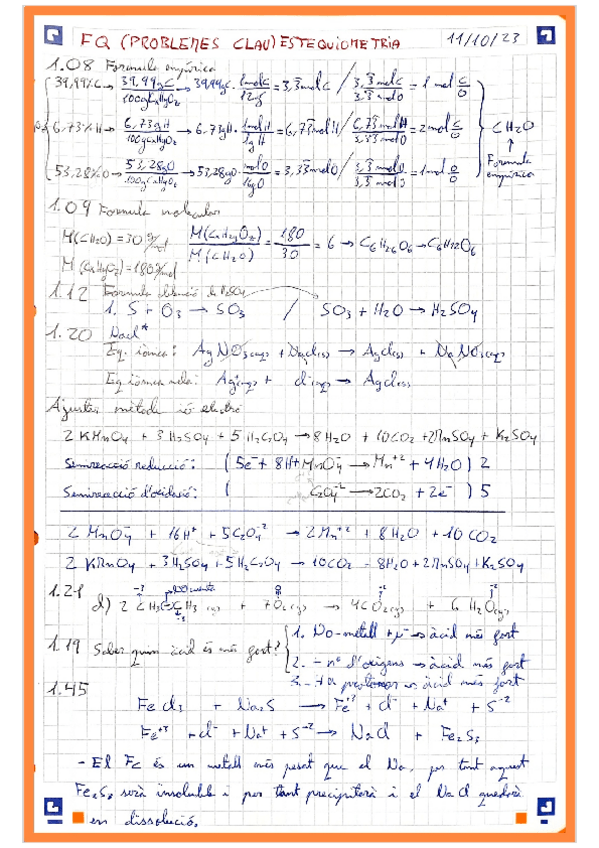 FQ (PROBLEMES CLAU) ESTEQUIOMETRIA 11/10/23
1.08 Formula empírica
39,99% C → 39,99g C / 100g CxHyOz → 39,99g C · 1mol C / 12g = 3,3 mol C / 3,3 mol C / 3,3 mol O = 1 mol C/O
6,73% H → 6,73g H / 100g CxHyOz → 6,73g H · 1mol H / 1g H = 6,73 mol H / 6,73 mol H / 3,33 mol O = 2 mol H/O CH2O
53,28% O → 53,28g O / 100g CxHyOz → 53,28g O · 1mol O / 16g O = 3,33 mol O / 3,3 mol O / 3,3 mol O = 1 mol O/O Formula empírica
1.09 Formula molecular
M(CH2O) = 30 g/mol M(CxHyOz) / M(CH2O) = 180 / 30 = 6 → C6H2·6O6 → C6H12O6
M(CxHyOz) = 180 g/mol
1.12 Formula
1. S + O3 → SO3 / SO3 + H2O → H2SO4
1.20 NaCl*
Eq. iònica: AgNO3(aq) + NaCl(s) → AgCl(s) + NaNO3(aq)
Eq iònica neta: Ag+(aq) + Cl-(aq) → AgCl(s)
Ajustes mètode ió electró
2 KMnO4 + 3 H2SO4 + 5 H2C2O4 → 8H2O + 10CO2 + 2MnSO4 + K2SO4
Semireacció reducció: ( 5e- + 8H+ MnO4- → Mn+2 + 4H2O ) 2
Semireacció d'oxidació: ( C2O4-2 → 2CO2 + 2e- ) 5
2 MnO4- + 16H+ + 5C2O4-2 → 2Mn+2 + 8H2O + 10 CO2
2 KMnO4 + 3H2SO4 + 5H2C2O4 → 10CO2 + 8H2O + 2MnSO4 + K2SO4
1.21 d) 2 CH3-CH3 (g) + 7O2(g) → 4CO2(g) + 6 H2O(g)
1.19 Saber quin àcid és més fort? 1. No-metall + → àcid més fort
2. - nº d'oxigens → àcid més fort
3. → àcid més fort
1.45
FeCl3 + Na2S → Fe+3 + Cl- + Na+ + S-2
Fe+3 + Cl- + Na+ + S-2 → NaCl + Fe2S3
- El Fe és un metall més pesat que el Na, per tant aquest
Fe2S3 serà insoluble i per tant precipitarà i el NaCl quedarà
en dissolució.